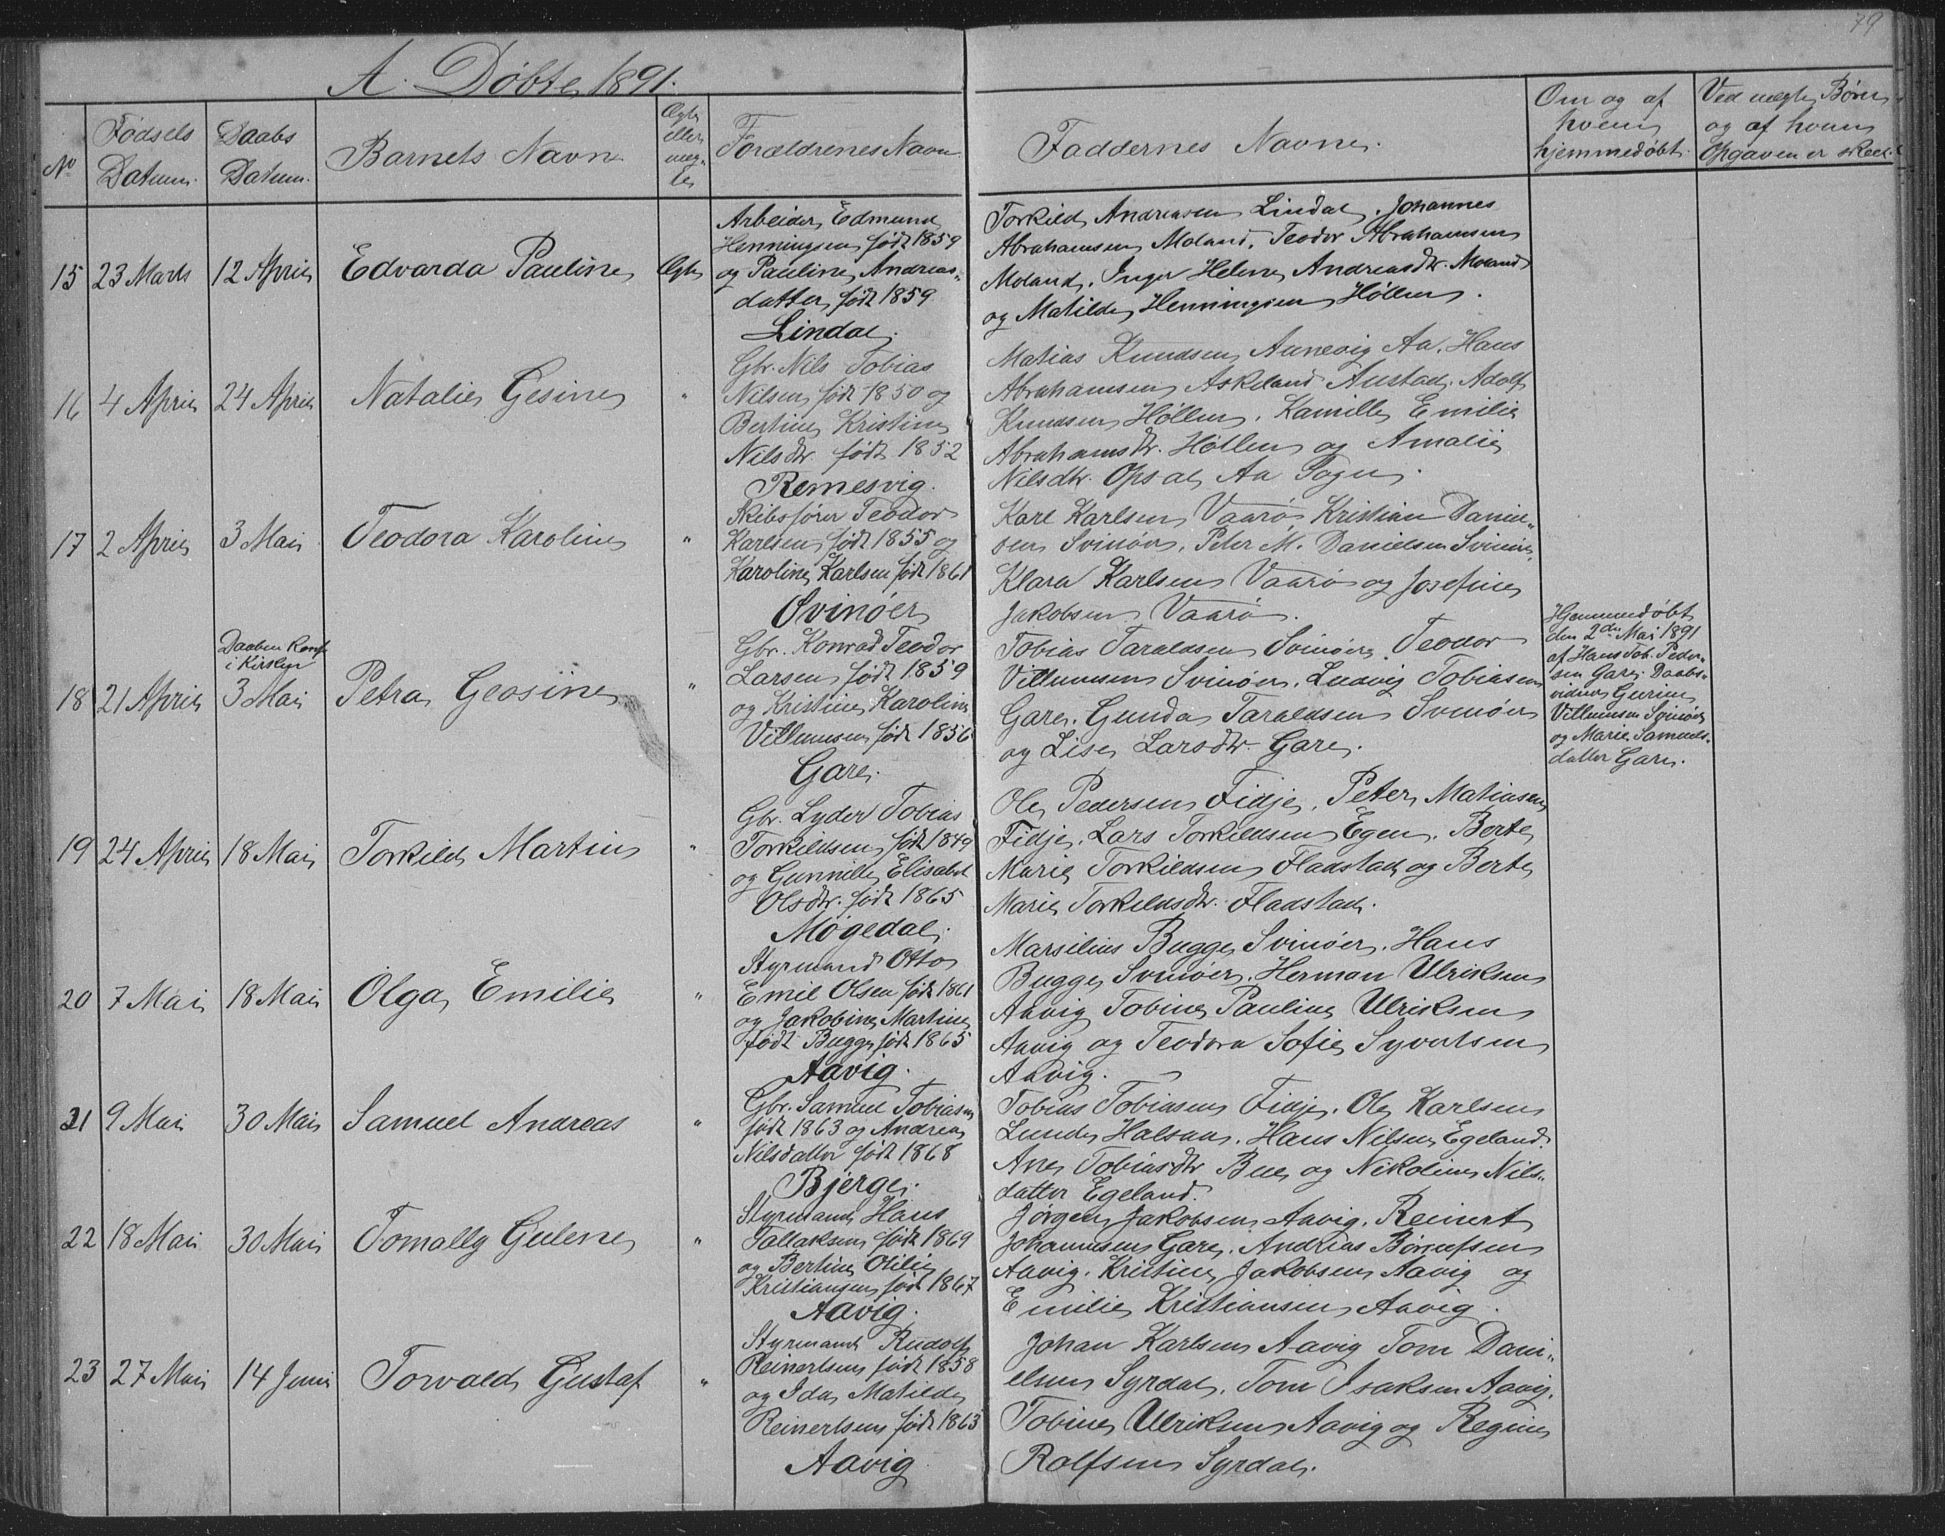 79
A. Døbte 1891.
No
Fødsels Datum.
Daabs Datum.
Barnets Navn
Ægte eller uægte
Forældrenes Navn
Faddernes Navne.
Om og af hvem hjemmedøbt.
Ved uægte Børn og af hvem Opgaven er skeet.
15 23 Marts 12 April Edvarda Pauline Ægte
Arbeider Edmund
Henningsen født 1859
og Pauline Andreas-
datter født 1859
Lindal.
Torkild Andreasen Lindal, Johannes
Abrahamsen Moland, Teodor Abrahamsen
Moland, Inger Helene Andreasdtr. Moland
og Matilde Henningsen Høllen.
16 4 April 24 April Natalie Gesine "
Gbr. Nils Tobias
Nilsen født 1850 og
Bertine Kristine
Nilsdtr. født 1852
Remesvig.
Matias Knudsen Aunevig Aa, Hans
Abrahamsen Askeland Austad, Adolf
Knudsen Høllen, Kamille Emilie
Abrahamsdtr. Høllen og Amalie
Nilsdtr. Opsal Aa Sogn.
17 2 April 3 Mai Teodora Karoline "
Skibsfører Teodor
Karlsen født 1855 og
Karoline Karlsen født 1861
Svinøer
Karl Karlsen Vaarø, Kristian Daniel-
sen Svinøer, Peter M. Danielsen Svinøer,
Klara Karlsen Vaarø og Josefine
Jakobsen Vaarø.
18 21 April
Daaben Konf.
i Kirken
3 Mai Petra Geosine "
Gbr. Konrad Teodor
Larsen født 1859
og Kristine Karoline
Villumsen født 1856
Gare.
Tobias Taraldsen Svinøer, Teodor
Villumsen Svinøer, Ludvig Tobiasen
Gare, Gunda Taraldsen Svinøer
og Lise Larsdtr. Gare.
Hjemmedøbt
den 2den Mai 1891
af Hans Joh. Peder-
sen Gare. Daabs-
vidner Gurine
Villumsen Svinøer
og Marie Samuels-
datter Gare.
19 24 April 18 Mai Torkild Martin "
Gbr. Lyder Tobias
Torkildsen født 1849
og Gunnille Elisabet
Olsdtr. født 1865
Møgedal.
Ole Pedersen Fidje, Peter Matiasen
Fidje, Lars Torkildsen Egen, Berte
Marie Torkildsen Fladstad og Berte
Marie Torkildsdtr. Fladstad.
20 7 Mai 18 Mai Olga Emilie "
Styrmand Otto
Emil Olsen født 1861
og Jakobine Martine
født Bugge født 1865
Aavig.
Marsilius Bugge Svinøer, Hans
Bugge Svinøer, Herman Ulriksen
Aavig Tobine Pauline Ulriksen
Aavig og Teodora Sofie Syvertsen
Aavig.
21 9 Mai 30 Mai Samuel Andreas "
Gbr. Samuel Tobiasen
født 1863 og Andrea
Nilsdatter født 1868
Bjerge.
Tobias Tobiasen Fidje, Ole Karlsen
Lunde Halsaa, Hans Nilsen Egeland.
Ane Tobiasdtr Bue og Nikoline Nils-
datter Egeland.
22 18 Mai 30 Mai Tomally Guline "
Styrmand Hans
Tallaksen født 1869
og Bertine Otilie
Kristiansen født 1867
Aavig.
Jørgen Jakobsen Aavig, Reinert
Johannesen Gare, Andreas Børuufsen
Aavig, Kristine Jakobsen Aavig og
Emilie Kristiansen Aavig.
23 27 Mai 14 Juni Torvald Gustaf "
Styrmand Rudolf
Reinertsen født 1858
og Ida Matilde
Reinertsen født 1863
Aavig
Johan Karlsen Aavig Tom Dani-
elsen Syrdal, Tom Isaksen Aavig,
Tobine Ulriksen Aavig og Regine
Rolfsen Syrdal.